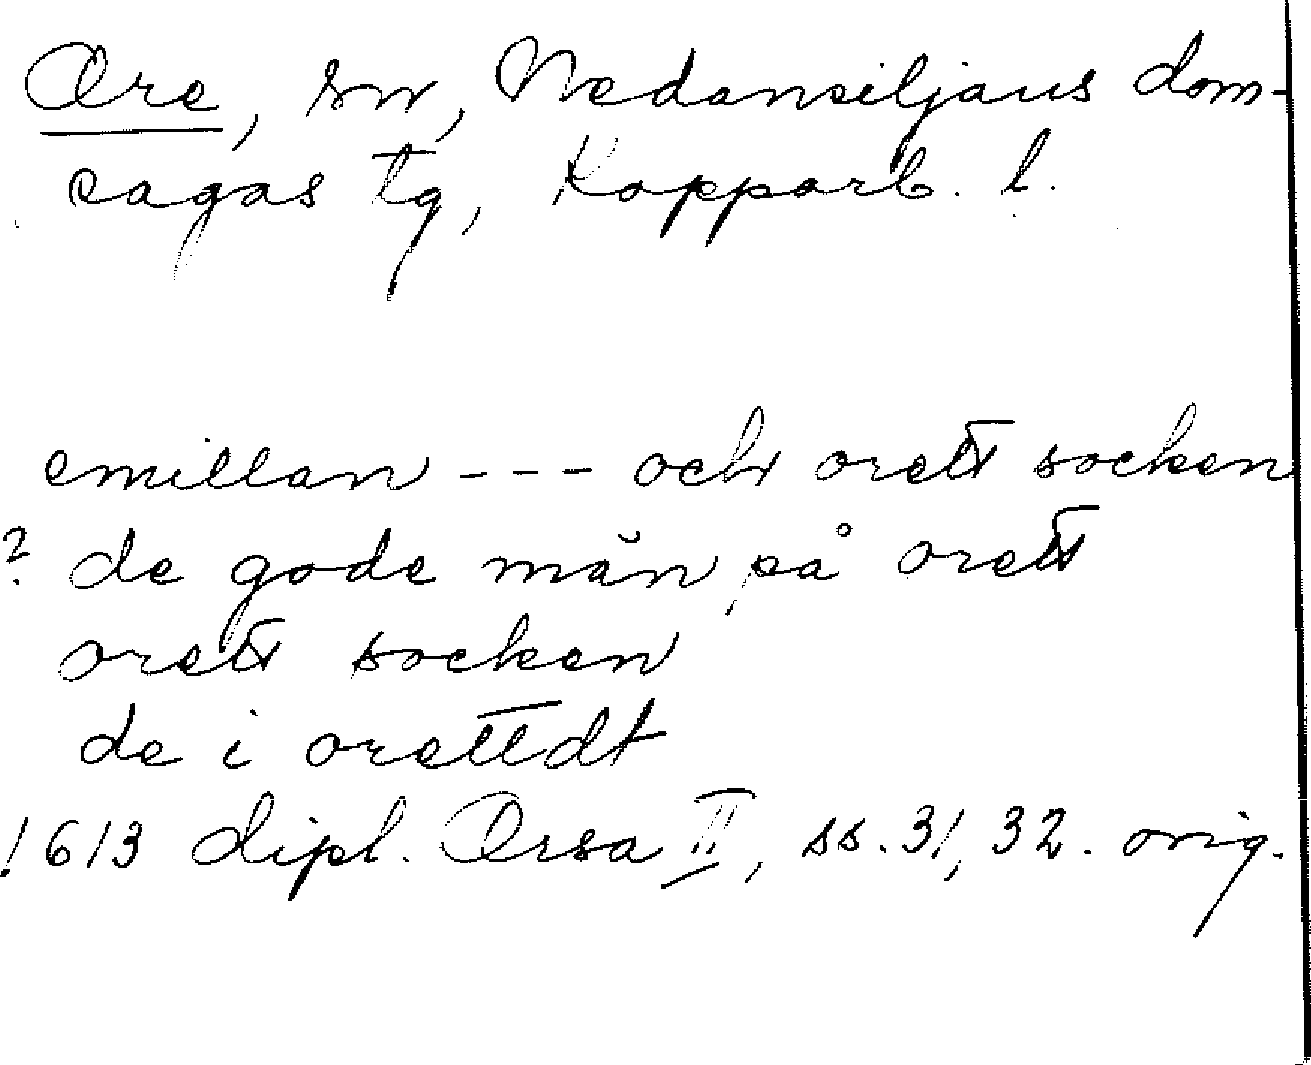 Ore, sn, Nedansiljans dom-
sagas tg, Kopparb. l.
emillan --- och orett socken
? de gode män på orett
orett socken
de i orettdt
1613 dipl. Orsa II, ss. 31, 32. orig.